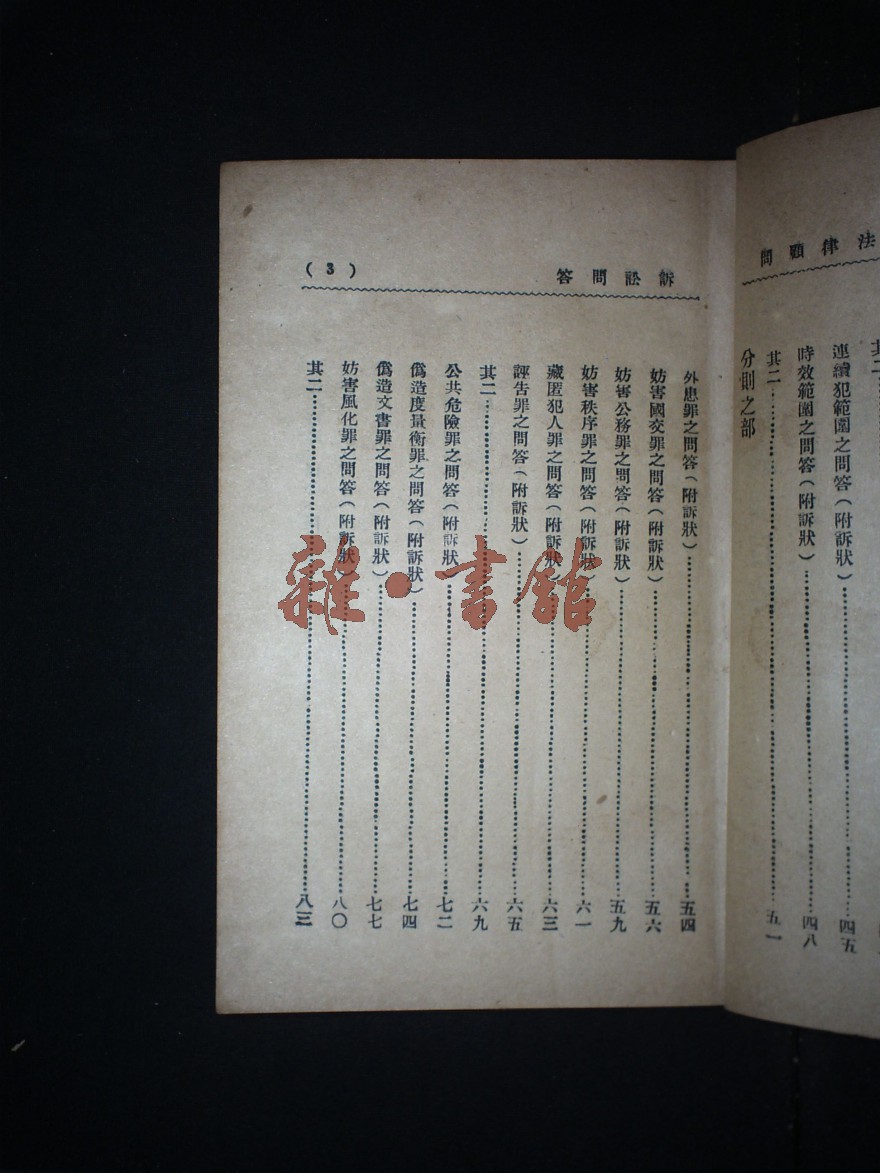 法律顧問
連續犯範圍之問答（附訴狀）……四五
時效範圍之問答（附訴狀）……四八
其二……五一
分則之部
訴訟問答
(3)
外患罪之問答（附訴狀）……五四
妨害國交罪之問答（附訴狀）……五六
妨害公務罪之問答（附訴狀）……五九
妨害秩序罪之問答（附訴狀）……六一
藏匿犯人罪之問答（附訴狀）……六三
誣告罪之問答（附訴狀）……六五
其二……六九
公共危險罪之問答（附訴狀）……七二
偽造度量衡罪之問答（附訴狀）……七四
偽造文書罪之問答（附訴狀）……七七
妨害風化罪之問答（附訴狀）……八〇
其二……八三
雜·書館